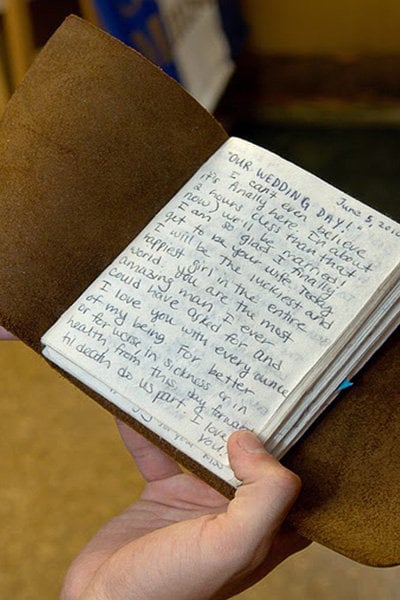 June 5, 2010
"OUR WEDDING DAY!"
I can't even believe
it's finally here. In about
2 hours (less than that
now) we'll be married!
I am so glad I finally
get to be your wife today
I will be the luckiest and
happiest girl in the entire
world. You are the most
amazing man I ever
could have asked for and
I love you with every ounce
of my being. For better
or for worse in sickness or in
health, from this day forward
til death do us part. I love
you!